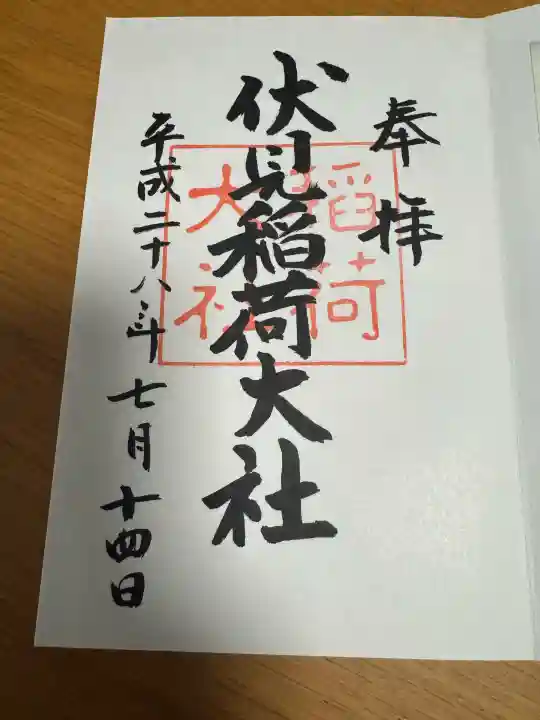 奉拝
伏見稲荷大社
稲荷
大社
平成二十八年七月十四日